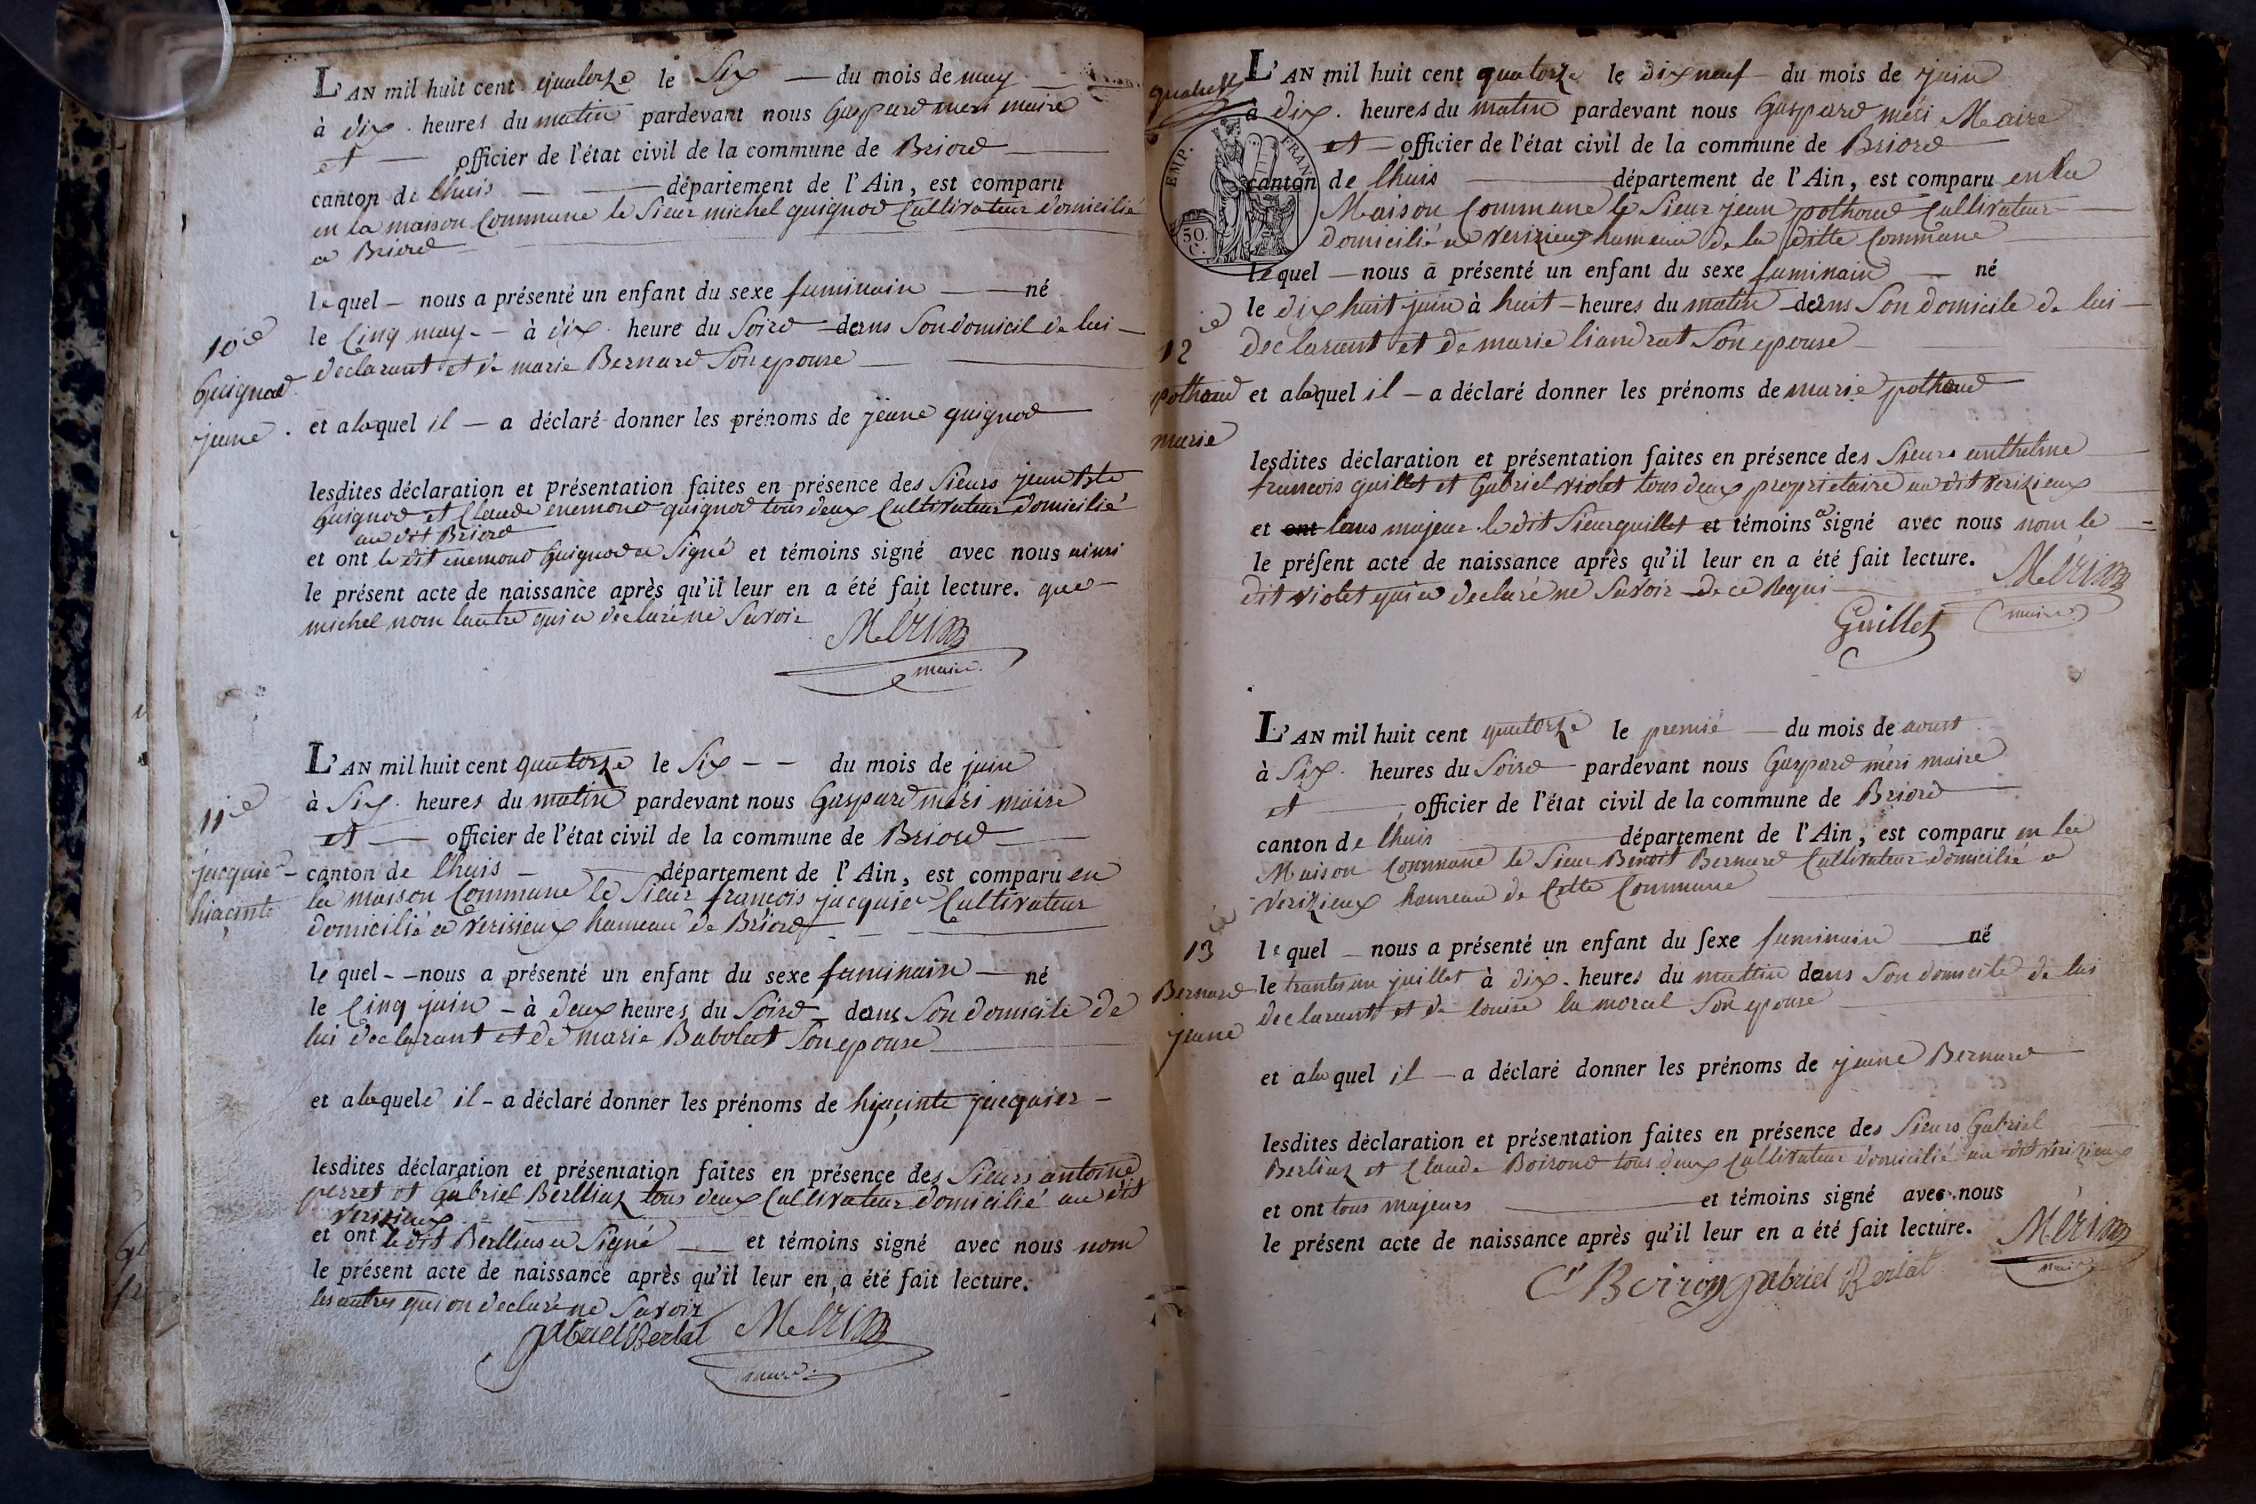 L'AN mil huit cent quatorze le Six — du mois de may
à dix heures du matin pardevant nous Gaspard meri maire
et — officier de l'état civil de la commune de Briord —
canton de lhuis — département de l'Ain, est comparu
en la maison Commune le Sieur michel guignod Cultivateur domicilié
a Briord
le quel — nous a présenté un enfant du sexe faminain — né
le Cinq may — à dix heure du Soird dans Son domicil de lui —
declarant et de marie Bernard Son epouse —
10e
Guignod
jeane
et alaquel il — a déclaré donner les prénoms de jeane guignod
lesdites déclaration et présentation faites en présence des Sieurs jean Bte
Guignod et Claude enemond guignod tous deux Cultivateur domicilié
au dit Briord
et ont le dit enemond Guignod a Signé et témoins signé avec nous ainsi
le présent acte de naissance après qu'il leur en a été fait lecture. que
michel nom lautre qui a declaré ne Savoir
Meri
maire
L'AN mil huit cent quatorze le Six — — du mois de juin
à Six heures du matin pardevant nous Gaspard meri maire
et — officier de l'état civil de la commune de Briord —
canton de lhuis — département de l'Ain, est comparu en
la maison Commune le Sieur francois jacquier Cultivateur
domicilié a verisieux hameau de Briord
11e
jacquier
hiacinte
le quel — nous a présenté un enfant du sexe faminain — né
le Cinq juin — à deux heures du Soird dans Son domicile de
lui declarant et de marie Babolat Son epouse
et alaquele il — a déclaré donner les prénoms de hiacinte jacquier —
lesdites déclaration et présentation faites en présence des Sieurs antoine
perret et Gabriel Berlliaz tous deux Cultivateur domicilié au dit
verisieux
et ont le dit Berllias a Signé — et témoins signé avec nous nom
le présent acte de naissance après qu'il leur en a été fait lecture.
les autres qui on declaré ne Savoir
gabriel Berlat Meri
maire
L'AN mil huit cent quatorze le dix neuf — du mois de juin
à dix heures du matin pardevant nous Gaspard méri Maire
et — officier de l'état civil de la commune de Briord
EMP. FRAN
50 C.
canton de lhuis — département de l'Ain, est comparu en la
Maison Commune le Sieur jean pothoud Cultivateur —
domicilié a verizieux hameau de la ditte Commune —
le quel — nous a présenté un enfant du sexe faminain — né
le dix huit juin à huit — heures du matin dans Son domicile de lui —
declarant et de marie liandrat Son epouse —
12e
pothoud
marie
et alaquel il — a déclaré donner les prénoms de marie pothoud
lesdites déclaration et présentation faites en présence des Sieurs anthelme
francois guillet et Gabriel violet tous deux proprietaire au dit verizieux
et ont tous majeur le dit Sieur guillet et témoins a signé avec nous nom le —
le présent acte de naissance après qu'il leur en a été fait lecture.
dit violet qui a declaré ne Savoir de ce Requi —
Meri
maire
Guillet
L'AN mil huit cent quatorze le premié — du mois de aoust
à Six heures du Soird pardevant nous Gaspard méri maire
et — officier de l'état civil de la commune de Briord
canton de lhuis — département de l'Ain, est comparu en la
Maison Commune le Sieur Benoit Bernard Cultivateur domicilié a
verizieux hameau de Cette Commune
13e
Bernard
jeane
le quel — nous a présenté un enfant du sexe faminain — né
le trantes un juillet à dix heures du mattin dans Son domicile de lui
declarant et de louise la morel Son epouse —
et alaquel il — a déclaré donner les prénoms de jeane Bernard
lesdites déclaration et présentation faites en présence des Sieurs Gabriel
Berliaz et Claude Boirond tous deux Cultivateur domicilié au dit verizieux
et ont tous majeurs — et témoins signé avec nous
le présent acte de naissance après qu'il leur en a été fait lecture.
Meri
maire
Cl Boiron gabriel Berlat